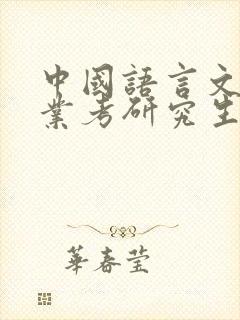 中國語言文
業考研究生
華春瑩